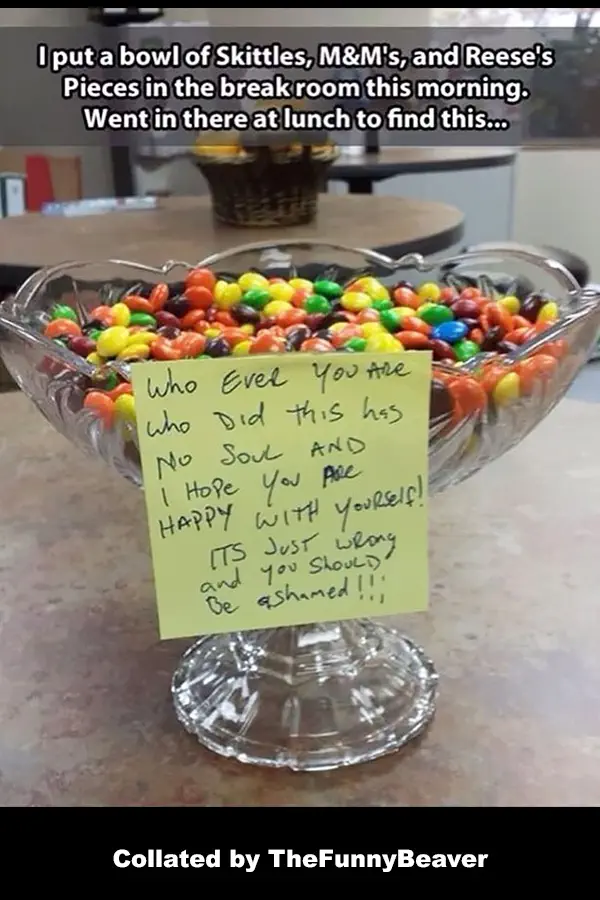 I put a bowl of Skittles, M&M's, and Reese's
Pieces in the break room this morning.
Went in there at lunch to find this...
Who Ever You Are
who Did this has
No Soul AND
I Hope You Are
HAPPY WITH YourSelf!
ITS Just wrong
and you Should
Be ashamed!!;
Collated by TheFunnyBeaver